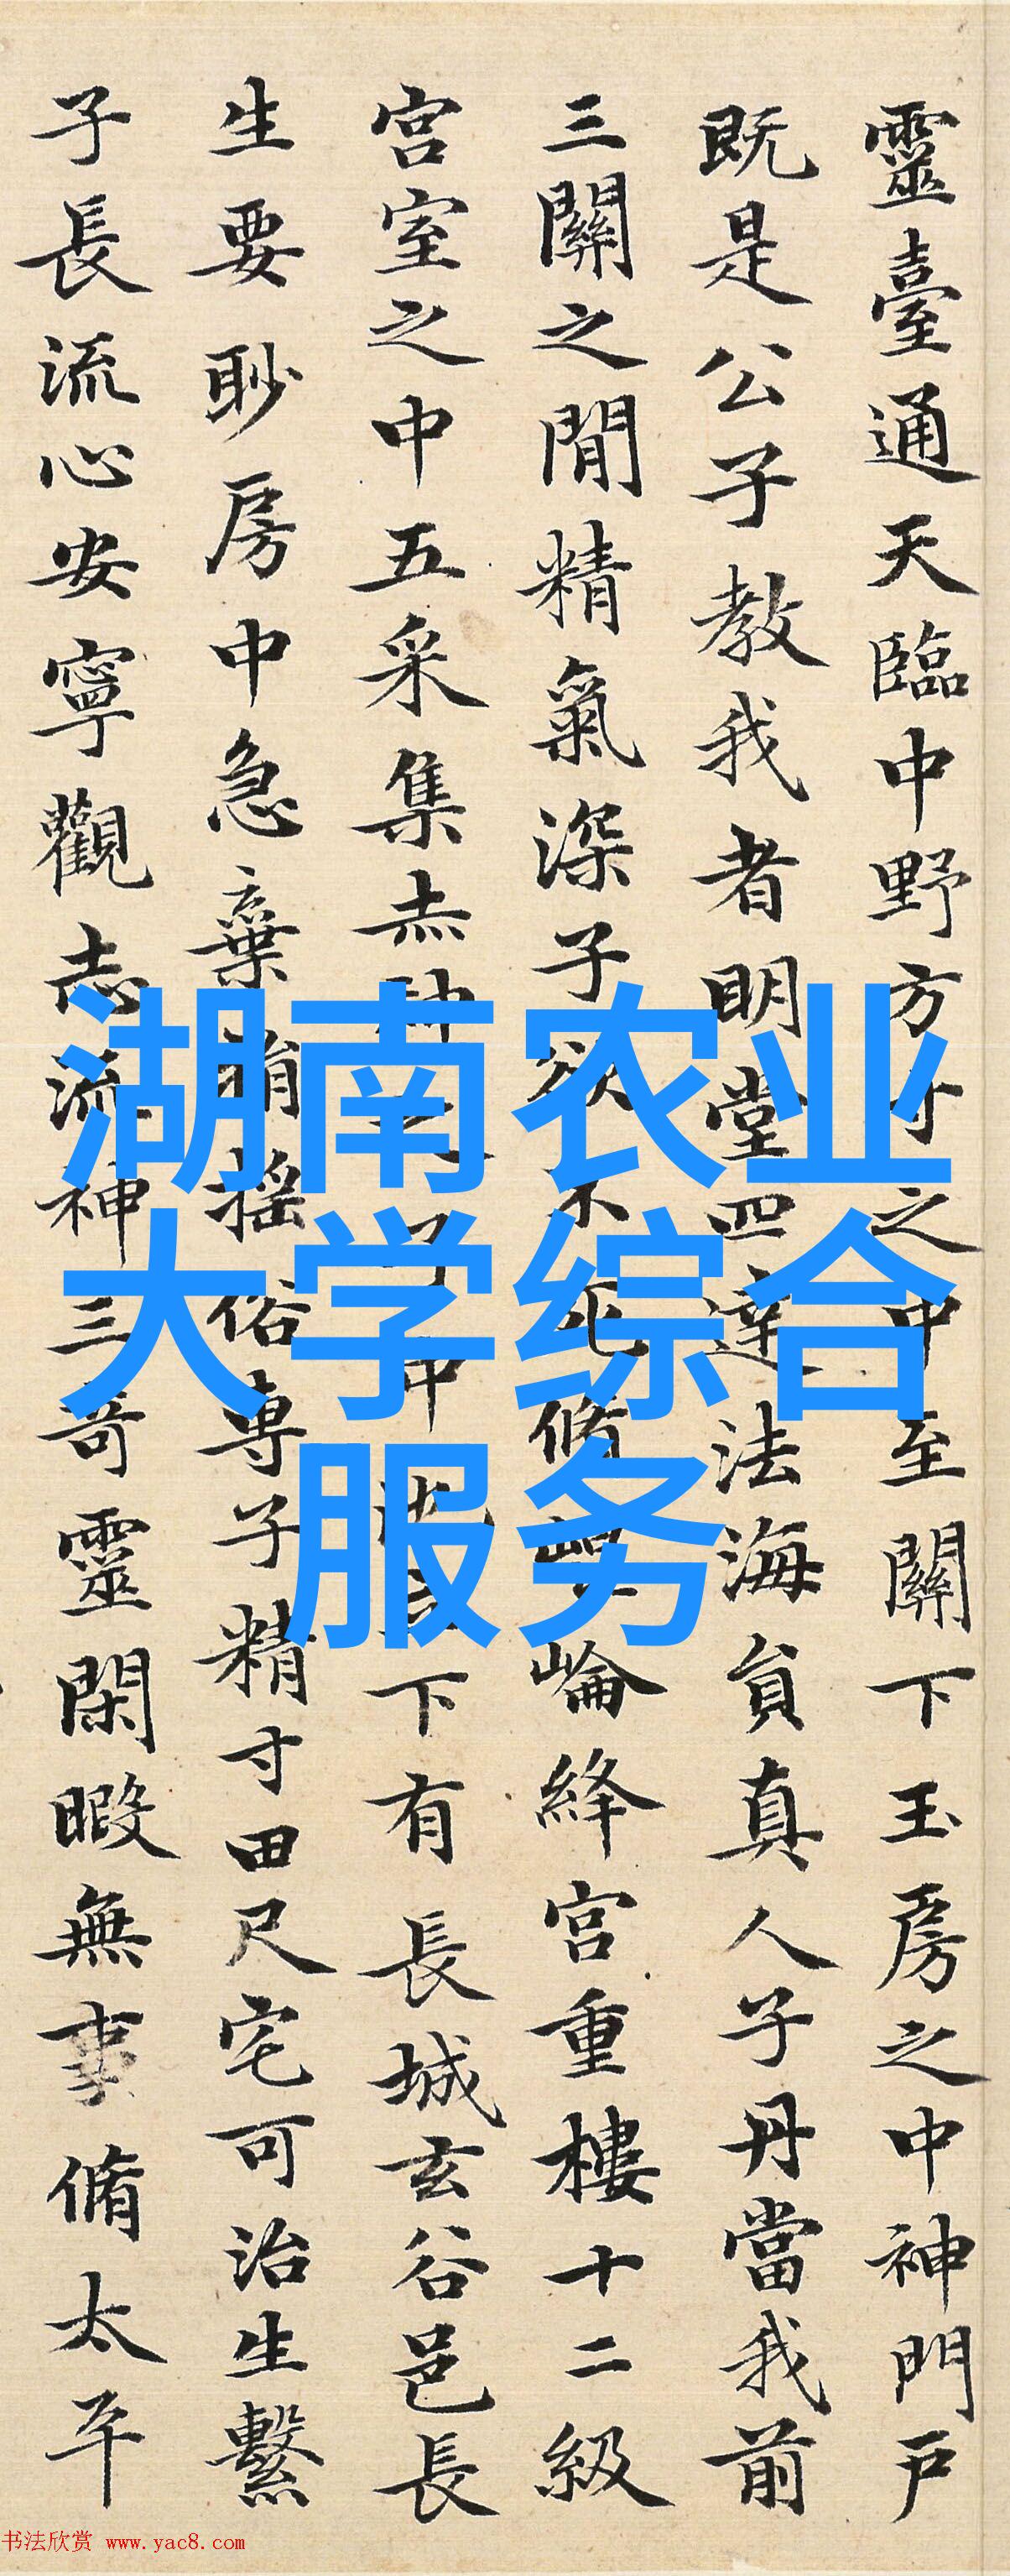 靈臺通天臨中野方寸之中至關下玉房之中神門户
既是公子教我者明堂四達法海員真人子丹當我前
三關之閒精氣深子欲不死脩崐崘絳宮重樓十二級
宮室之中五采集赤神之子中池立下有長城玄谷邑長
生要眇房中急棄捐揺俗専子精寸田尺宅可治生繫
子長流心安寧觀志流神三奇靈閑暇無事脩太平
湖南农业
大学综合
服务
书法欣赏 www.yac8.com